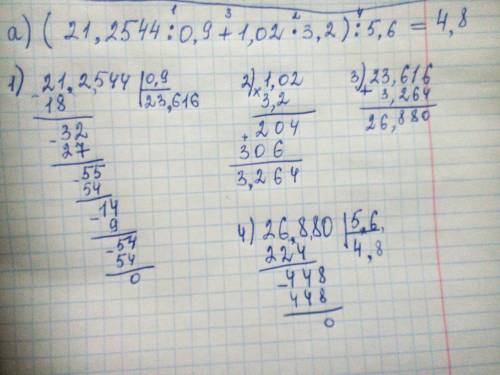 а) ( 21,2544 : 0,9 + 1,02 · 3,2 ) : 5,6 = 4,8
1 3 2 4
1) 21,2544 | 0,9
- 18 23,616
- 32
27
- 55
54
- 14
9
- 54
54
0
2) 1,02
× 3,2
204
+ 306
3,264
3) 23,616
+ 3,264
26,880
4) 26,880 | 5,6
224 4,8
- 448
448
0